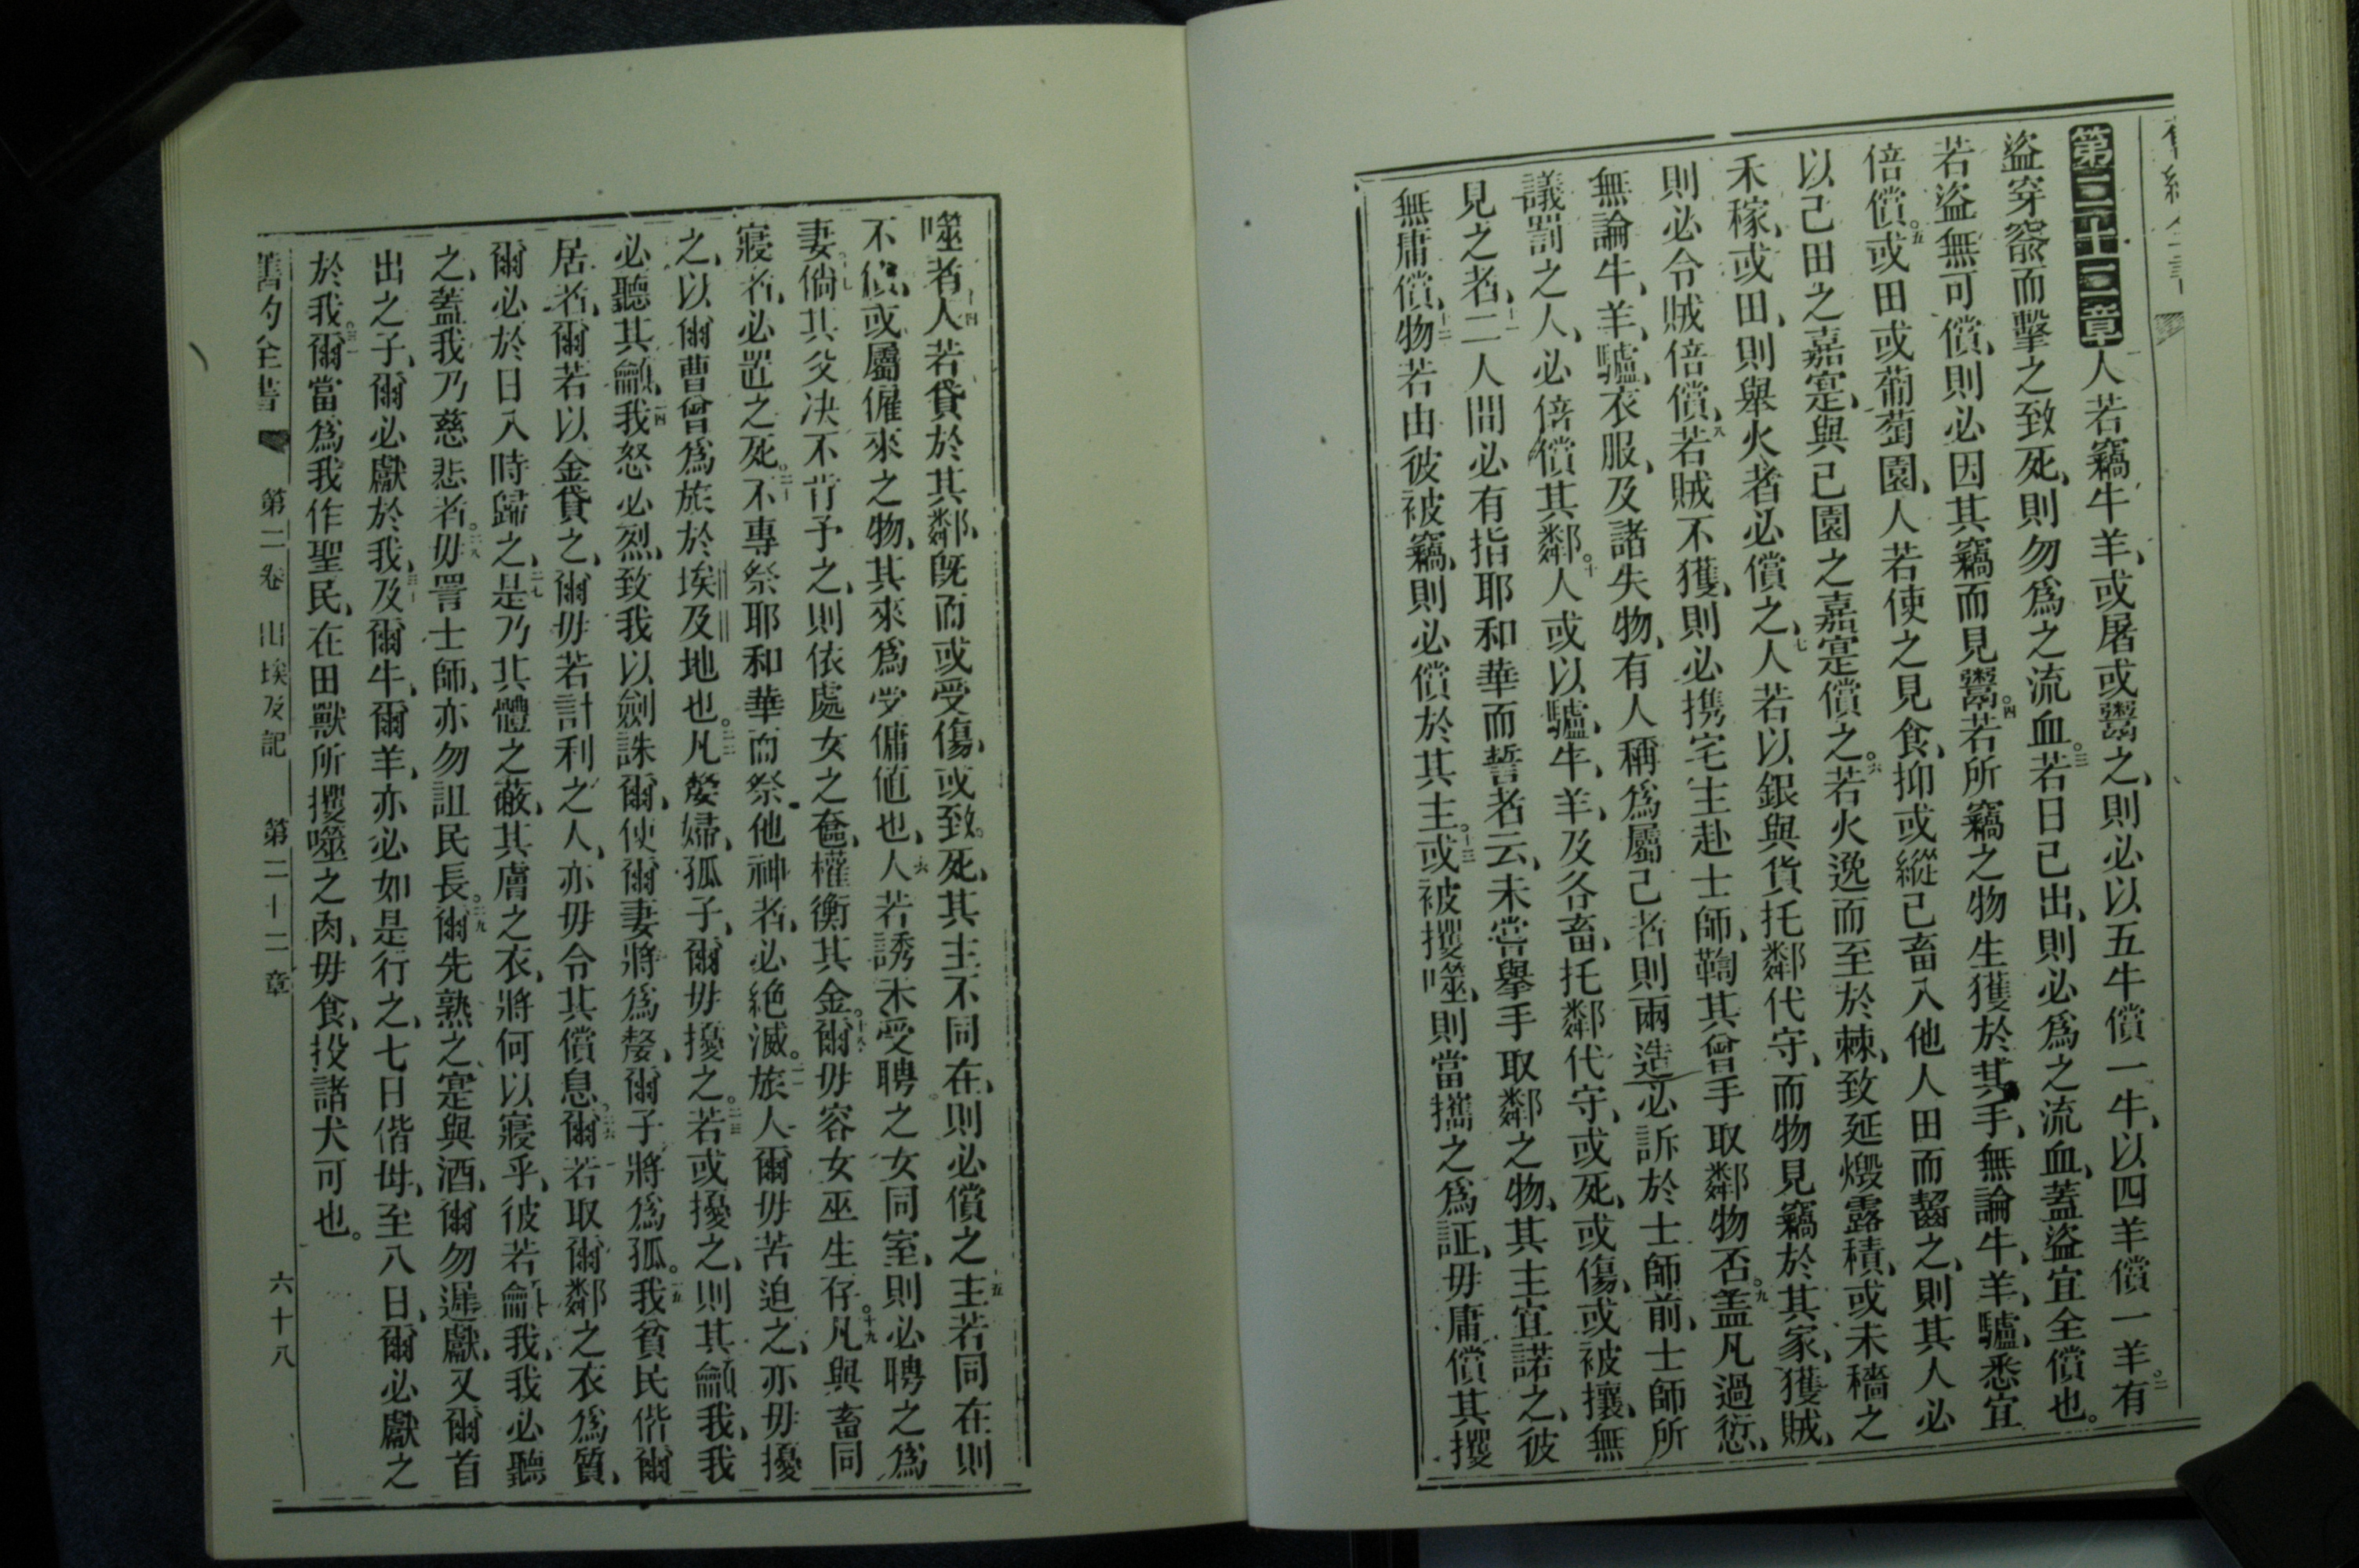 第二十二章人若竊牛羊、或屠或鬻之、則必以五牛償一牛、以四羊償一羊。二有
盜穿窬而擊之致死、則勿爲之流血。三若日已出、則必爲之流血、蓋盜宜全償也。
若盜無可償、則必因其竊而見鬻。四若所竊之物生獲於其手、無論牛、羊、驢、悉宜
倍償。五或田或葡萄園、人若使之見食、抑或縱己畜入他人田而齧之、則其人必
以己田之嘉寔、與己園之嘉寔償之。六若火逸而至於棘、致延燬露積、或未穡之
禾稼、或田、則舉火者必償之、七人若以銀與貨托鄰代守、而物見竊於其家、獲賊、
則必令賊倍償、八若賊不獲、則必携宅主赴士師、鞫其曾手取鄰物否。九盖凡過愆、
無論牛、羊、驢、衣服、及諸失物、有人稱爲屬己者則兩造必訴於士師前、士師所
議罰之人、必倍償其鄰。十人或以驢、牛、羊、及各畜、托鄰代守、或死、或傷、或被攘、無
見之者、十一二人間必有指耶和華而誓者云、未嘗舉手取鄰之物、其主宜諾之、彼
無庸償、十二物若由彼被竊、則必償於其主。十三或被攫噬、則當攜之爲証、毋庸償其攫
噬者、十四人若貸於其鄰、旣而或受傷、或致死、其主不同在、則必償之十五主若同在則
不償、或屬僱來之物、其來爲受傭値也、十六人若誘未受聘之女同室、則必聘之爲
妻。倘其父决不肯予之、則依處女之奩、權衡其金。十八爾毋容女巫生存。十九凡與畜同
寢者、必置之死。二十不專祭耶和華而祭他神者、必絕滅。二一旅人爾毋苦迫之、亦毋擾
之、以爾曹曾爲旅於埃及地也。二二凡嫠婦、孤子、爾毋擾之。二三若或擾之、則其籲我、我
必聽其籲、二四我怒必烈、致我以劍誅爾、使爾妻將爲嫠、爾子將爲孤。二五我貧民偕爾
居者、爾若以金貸之、爾毋若計利之人、亦毋令其償息。二六爾若取爾鄰之衣爲質、
爾必於日入時歸之、二七是乃其體之蔽、其膚之衣、將何以寢乎、彼若籲我、我必聽
之、蓋我乃慈悲者。二八毋詈士師、亦勿詛民長。二九爾先熟之寔與酒、爾勿遲獻、又爾首
出之子、爾必獻於我、三十及爾牛、爾羊、亦必如是行之、七日偕母、至八日、爾必獻之
於我。三一爾當爲我作聖民、在田獸所攫噬之肉、毋食、投諸犬可也。
舊約全書 第二卷 出埃及記 第二十二章 六十八